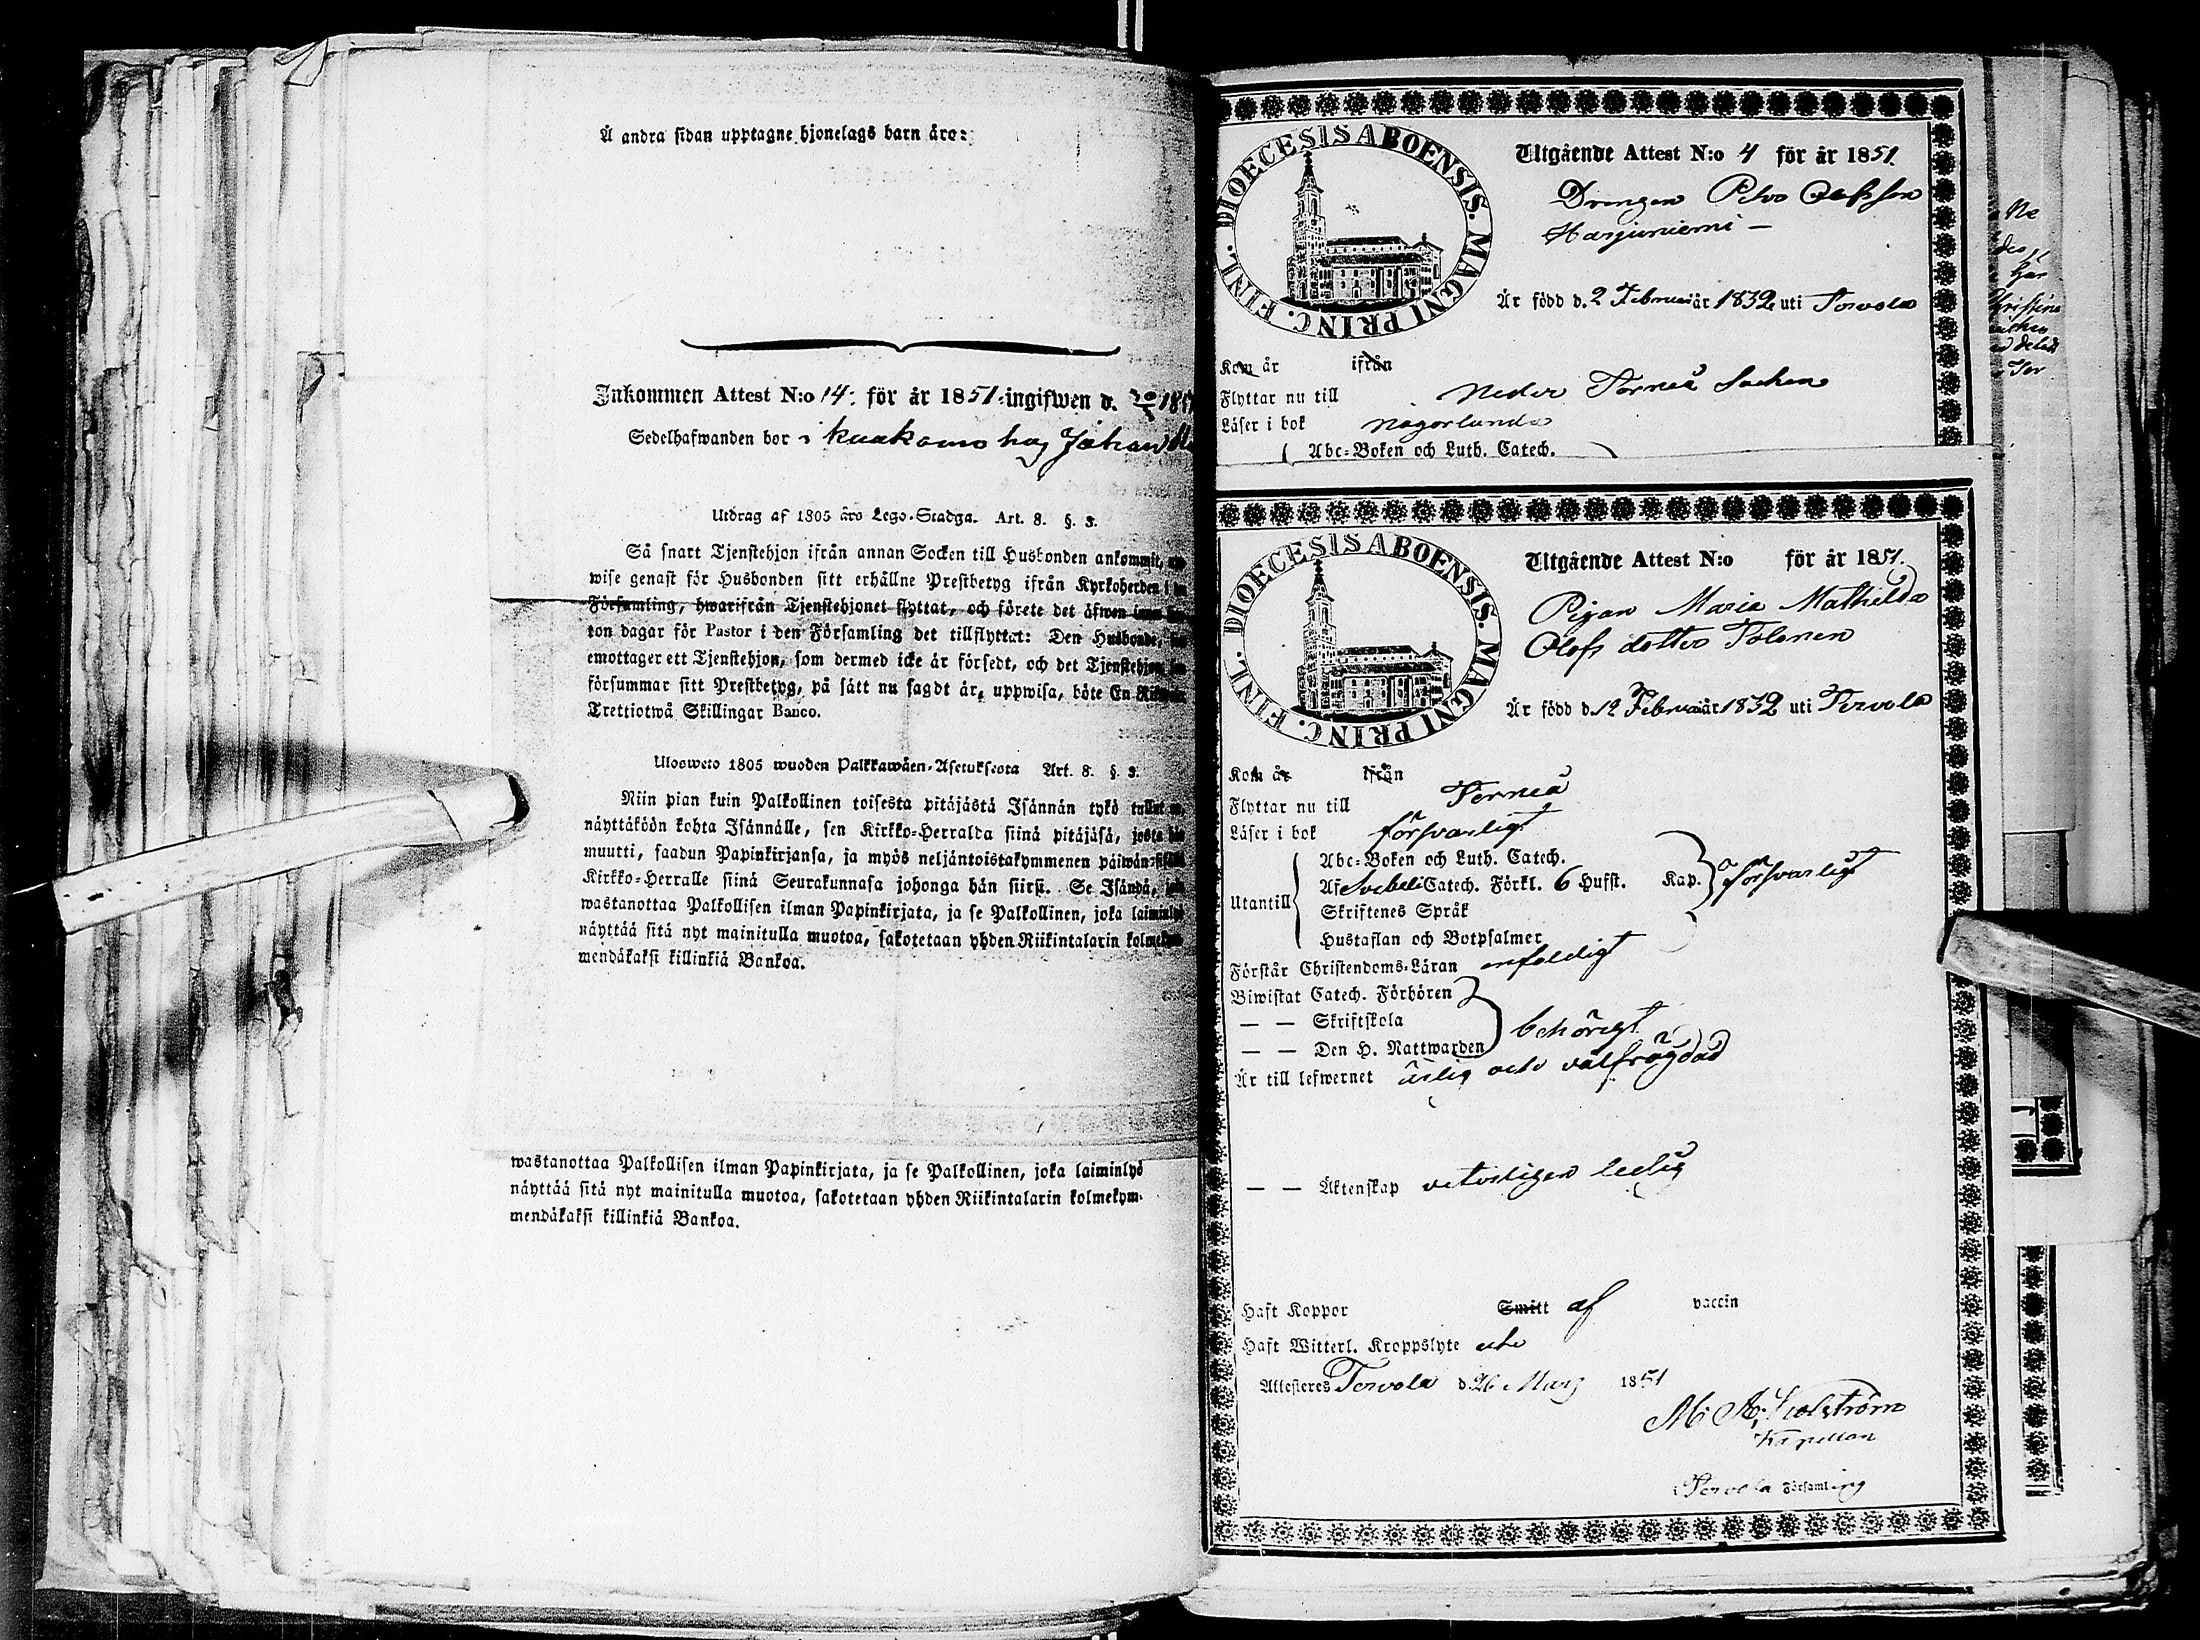 Å andra sidan upptagne hjonelags barn äro:
Inkommen Attest N:o 14. för år 1851. ingifwen d.
Sedelhafwanden bor i kuakamo hos Johan
Utdrag af 1805 års Lego-Stadga. Art. 8. §. 3.
Så snart Tjenstehjon ifrån annan Socken till Husbonden ankommit,
wise genast för Husbonden sitt erhållne Prestbetyg ifrån Kyrkoherden i
Församling, hwarifrån Tjenstehjonet flyttat, och förete det äfwen inom
ton dagar för Pastor i den Församling det tillflyttat: Den Husbonde,
emottager ett Tjenstehjon, som dermed icke är försedt, och det Tjenstehjon,
försummar sitt Prestbetyg, på sätt nu sagdt är, uppwisa, böte En
Trettiotwå Skillingar Banco.
Ulosweto 1805 wuoden Palkkawäen-Asetuksesta Art. 8. §. 3.
Niin pian kuin Palkollinen toisesta pitäjästä Isännän tykö tullut
näyttäköön kohta Isännälle, sen Kirkko-Herralda siinä pitäjäsä, josta
muutti, saadun Papinkirjansa, ja myös neljäntoistakymmenen päiwän
Kirkko-Herralle siinä Seurakunnasa johonga hän siirsi. Se Isändä,
wastanottaa Palkollisen ilman Papinkirjata, ja se Palkollinen, joka laiminlyö
näyttää sitä nyt mainitulla muotoa, sakotetaan yhden Riikintalarin kolmekym-
mendäkaksi killinkiä Bankoa.
wastanottaa Palkollisen ilman Papinkirjata, ja se Palkollinen, joka laiminlyö
näyttää sitä nyt mainitulla muotoa, sakotetaan yhden Riikintalarin kolmekym-
mendäkaksi killinkiä Bankoa.
DIOECESIS ABOENSIS. MAGNI PRINC. FINL.
Utgående Attest N:o 4 för år 1851.
Drengen Petter Olofsson
Harjuniemi –
Är född d. 2 Februari år 1832 uti Tervola
Kom år ifrån
Flyttar nu till Neder Torneå Socken
Läser i bok någorlunda
Abc-Boken och Luth. Catech.
DIOECESIS ABOENSIS. MAGNI PRINC. FINL.
Utgående Attest N:o för år 1851.
Pigan Maria Mathilda
Olofs dotter Tolonen
Är född d. 12 Februari år 1832 uti Tervola
Kom år ifrån
Flyttar nu till Torneå
Läser i bok försvarligt
Utantill
Abc-Boken och Luth. Catech.
Af Svebeli Catech. Förkl. 6 Hufst. Kap. försvarligt
Skriftenes Språk
Hustaflan och Botpsalmer
Förstår Christendoms-Läran enfaldigt
Biwistat Catech. Förhören
— — Skriftskola behörigt
— — Den H. Nattwarden
Är till lefwernet ärlig och välfrägdad
— — Äktenskap veterligen ledig
Haft Koppor Smitt af vaccin
Haft Witterl. Kroppslyte icke
Attesteres Tervola d. 26 Mars 1851
Kapellan
Tervola Församling